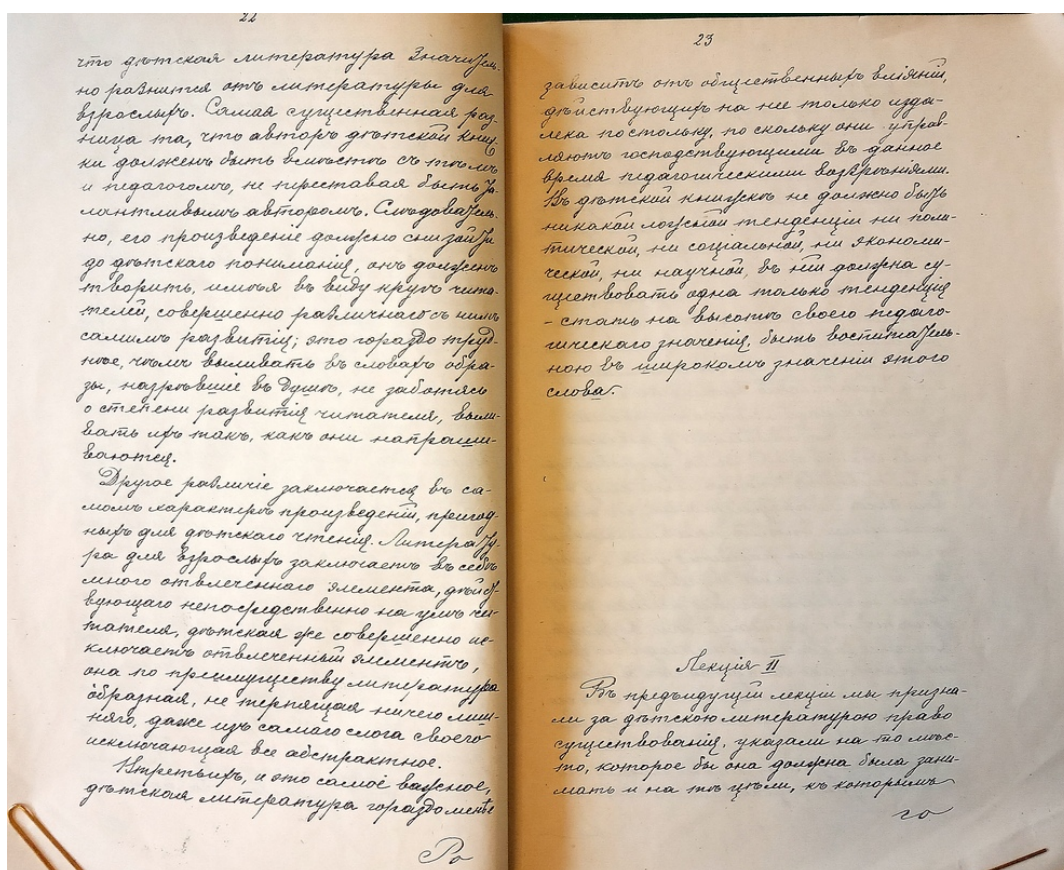 22
что дѣтская литература значитель-
но разнится отъ литературы для
взрослыхъ. Самая существенная раз-
ница та, что авторъ дѣтской книж-
ки долженъ быть вмѣстѣ съ тѣмъ
и педагогомъ, не переставая быть та-
лантливымъ авторомъ. Слѣдователь-
но, его произведеніе должно снизойти
до дѣтскаго пониманія, онъ долженъ
творить, имѣя въ виду кругъ чита-
телей, совершенно различнаго съ нимъ
самимъ развитія; это гораздо труд-
нѣе, чѣмъ выливать въ словахъ обра-
зы, назрѣвшіе въ душѣ, не заботясь
о степени развитія читателя, выли-
вать ихъ такъ, какъ они напраши-
ваются.
Другое различіе заключается въ са-
момъ характерѣ произведеній, пригод-
ныхъ для дѣтскаго чтенія. Литерату-
ра для взрослыхъ заключаетъ въ себѣ
много отвлеченнаго элемента, дѣйст-
вующаго непосредственно на умъ чи-
тателя, дѣтская же совершенно ис-
ключаетъ отвлеченный элементъ,
она по преимуществу литература
образная, не терпящая ничего лиш-
няго, даже изъ самаго слога своего
исключающая все абстрактное.
Втретьихъ, и это самое важное,
дѣтская литература гораздо менѣе
23
зависитъ отъ общественныхъ вліяній,
дѣйствующихъ на нее только изда-
лека постольку, по скольку они управ-
ляютъ господствующими въ данное
время педагогическими воззрѣніями.
Въ дѣтской книжкѣ не должно быть
никакой ложной тенденціи ни поли-
тической, ни соціальной, ни экономи-
ческой, ни научной, въ ней должна су-
ществовать одна только тенденція
- стать на высотѣ своего педаго-
гическаго значенія, быть воспитатель-
ною въ широкомъ значеніи этого
слова.
Лекція II
Въ предъидущей лекціи мы призна-
ли за дѣтскою литературою право
существованія, указали на то мѣс-
то, которое бы она должна была зани-
мать и на тѣ цѣли, къ которымъ